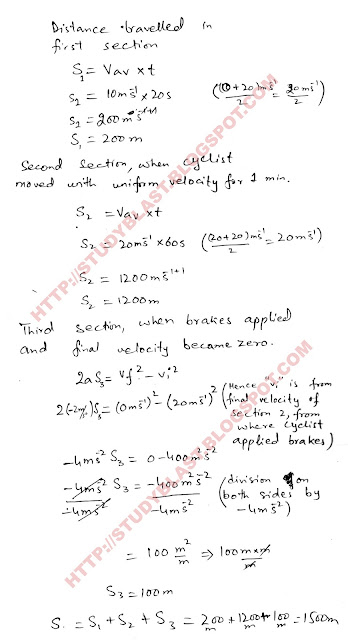 Distance travelled in
first section
S₁ = Vav x t
S₁ = 10ms⁻¹ x 20s ((0+20)ms⁻¹/2 = 20ms⁻¹/2)
S₁ = 200ms⁻¹⁺¹
S₁ = 200m
Second section, when cyclist
moved with uniform velocity for 1 min.
S₂ = Vav x t
S₂ = 20ms⁻¹ x 60s ((20+20)ms⁻¹/2 = 20ms⁻¹)
S₂ = 1200ms⁻¹⁺¹
S₂ = 1200m
Third section, when brakes applied
and final velocity became zero.
2aS₃ = Vf² - Vi²
2(-2m/s²)S₃ = (0ms⁻¹)² - (20ms⁻¹)² (Hence "vi" is from
final velocity of
section 2, from
where cyclist
applied brakes)
-4ms⁻² S₃ = 0-400m²s⁻²
-4ms⁻² S₃ / -4ms⁻² = -400m²s⁻² / -4ms⁻² (division on
both sides by
-4ms⁻²)
= 100 m²/m ⇒ 100m x m/m
S₃ = 100m
S = S₁ + S₂ + S₃ = 200m + 1200m + 100m = 1500m
HTTP://STUDYBLAST.BLOGSPOT.COM
HTTP://STUDYBLAST.BLOGSPOT.COM